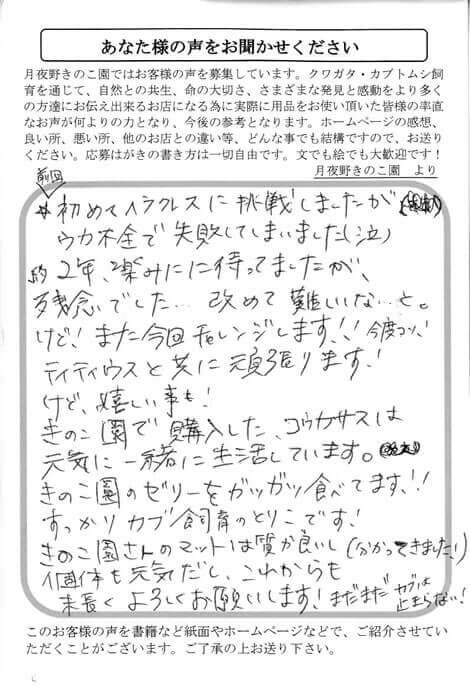 あなた様の声をお聞かせください
月夜野きのこ園ではお客様の声を募集しています。クワガタ・カブトムシ飼
育を通じて、自然との共生、命の大切さ、さまざまな発見と感動をより多く
の方達にお伝え出来るお店になる為に実際に用品をお使い頂いた皆様の率直
なお声が何よりの力となり、今後の参考となります。ホームページの感想、
良い所、悪い所、他のお店との違い等、どんな事でも結構ですので、お送り
ください。応募はがきの書き方は一切自由です。文でも絵でも大歓迎です！
月夜野きのこ園　より
前回
初めてヘラクレスに挑戦しましたが
ウカ不全で失敗してしまいました(泣)
約2年、楽みにに待ってましたが、
残念でした… 改めて難しいな…と。
けど！また今回チャレンジします！！今度コソ、
ティティウスと共に頑張ります！
けど、嬉しい事も！
きのこ園で購入した、コウカサスは
元気に一緒に生活しています。
きのこ園のゼリーをガッガッ食べてます！！
すっかりカブ飼育のとりこです！
きのこ園さんのマットは質が良いし(分かってきました！)
個体も元気だし、これからも
末長くよろしくお願いします！まだまだ カブは
止まらない！
このお客様の声を書籍など紙面やホームページなどで、ご紹介させてい
ただくことがございます。ご了承の上お送り下さい。